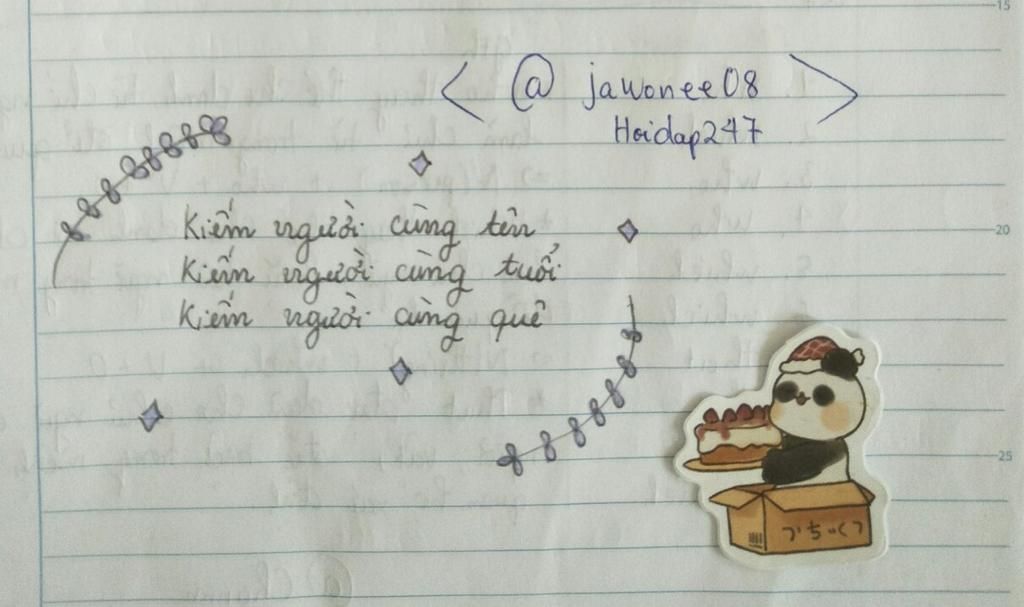 < @ jawonee08 >
Hoidap247
Kiếm người cùng tên
Kiếm người cùng tuổi
Kiếm người cùng quê
15
20
25